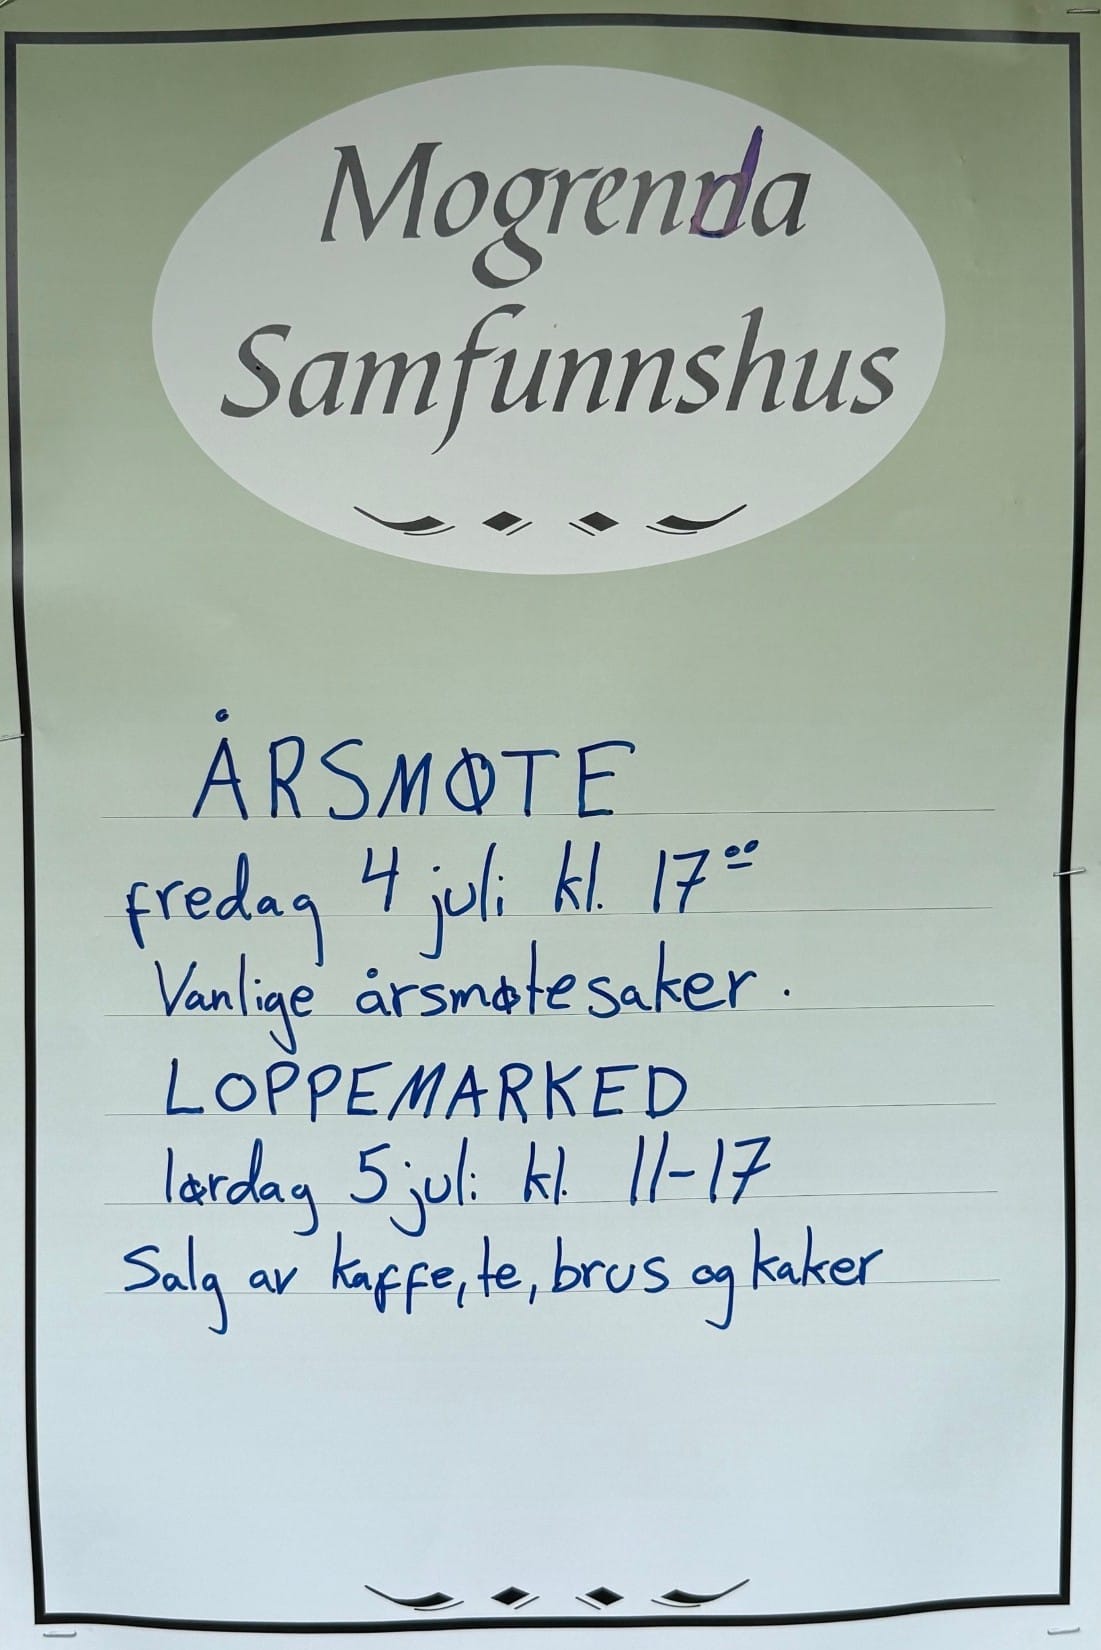 Mogrenda
Samfunnshus
ÅRSMØTE
fredag 4 juli kl. 17⁰⁰
Vanlige årsmøtesaker.
LOPPEMARKED
lørdag 5 juli kl. 11-17
Salg av kaffe, te, brus og kaker